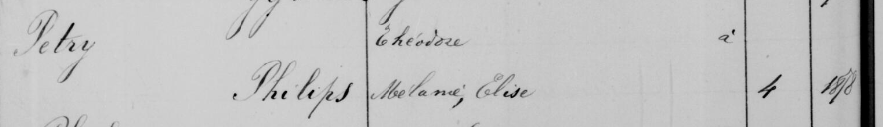 Petry Théodore à
Philips Mélanie, Elise 4 1878